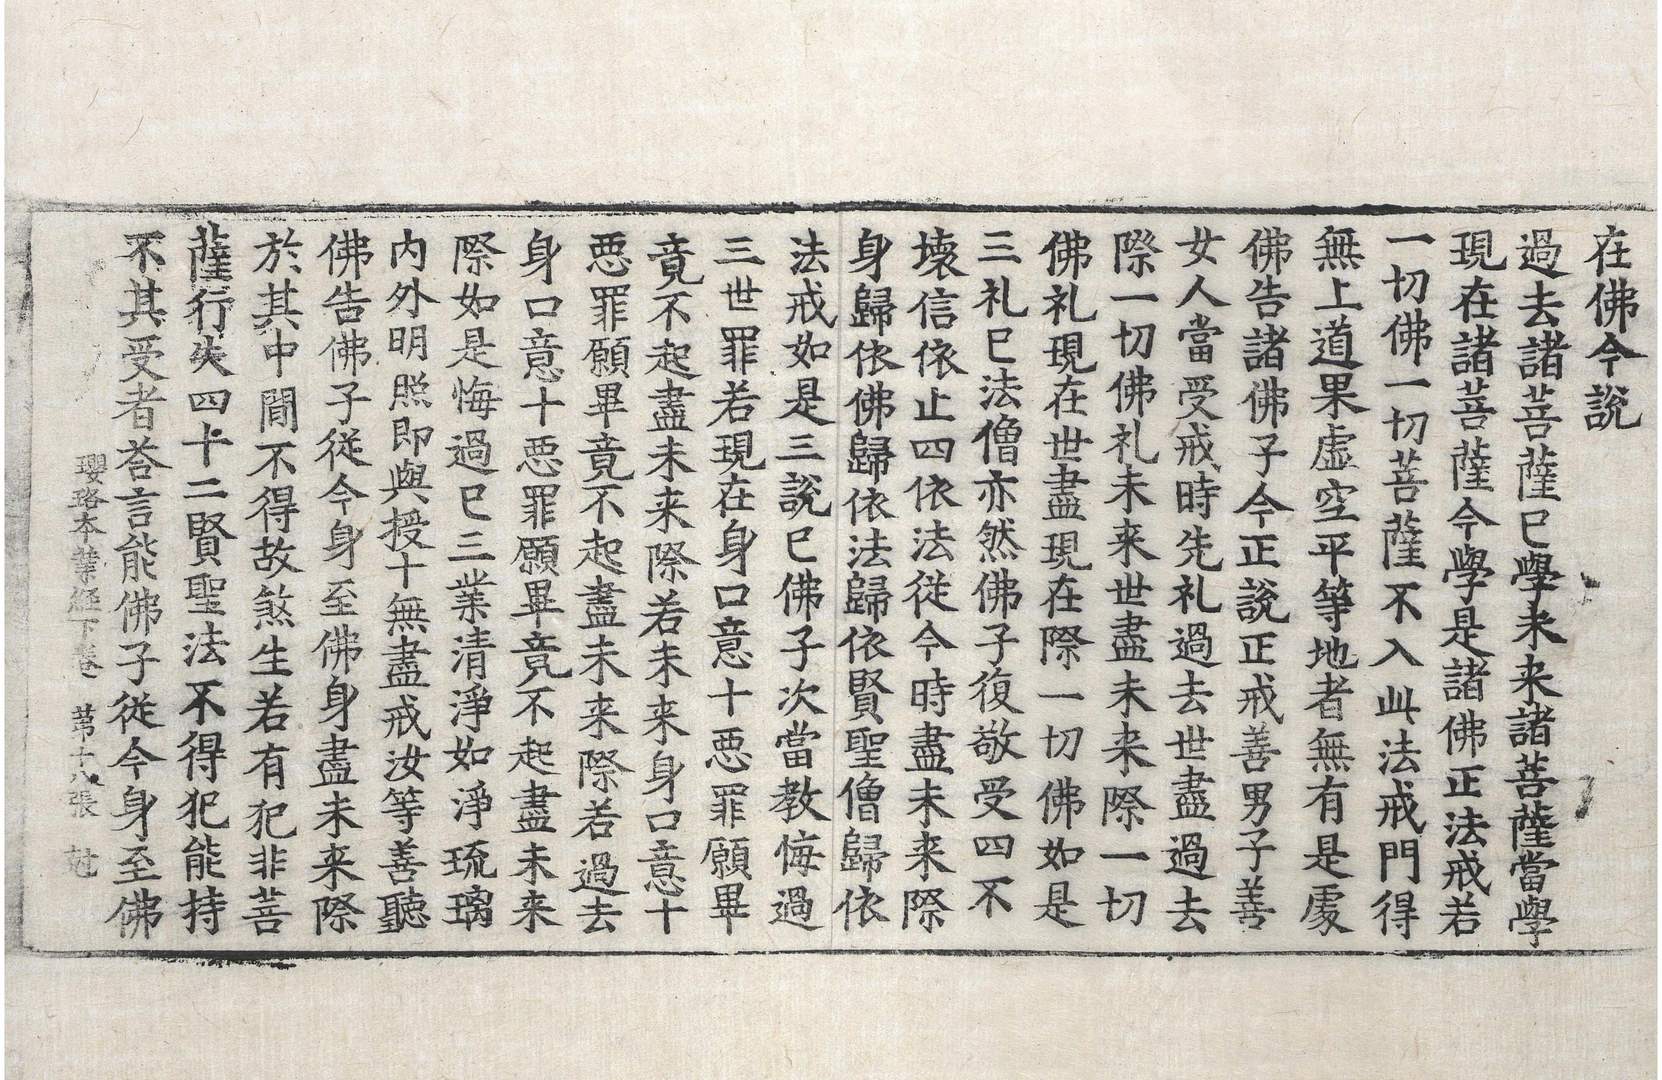 在佛今說
過去諸菩薩已學未来諸菩薩當學
現在諸菩薩今學是諸佛正法戒若
一切佛一切菩薩不入此法戒門得
無上道果虛空平等地者無有是處
佛告諸佛子今正說正戒善男子善
女人當受戒時先礼過去世盡過去
際一切佛礼未来世盡未来際一切
佛礼現在世盡現在際一切佛如是
三礼已法僧亦然佛子復敬受四不
壞信依止四依法從今時盡未来際
身歸依佛歸依法歸依賢聖僧歸依
法戒如是三說已佛子次當教悔過
三世罪若現在身口意十惡罪願畢
竟不起盡未来際若未来身口意十
惡罪願畢竟不起盡未来際若過去
身口意十惡罪願畢竟不起盡未来
際如是悔過已三業清淨如淨琉璃
內外明照即與授十無盡戒汝等善聽
佛告佛子從今身至佛身盡未来際
於其中間不得故煞生若有犯非菩
薩行失四十二賢聖法不得犯能持
不其受者荅言能佛子從今身至佛
瓔珞本業經下卷 第十八張 尅